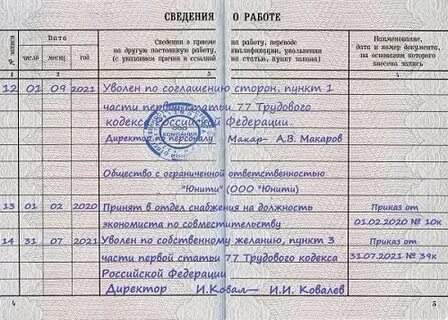 СВЕДЕНИЯ О РАБОТЕ
№ записи
Дата
Сведения о приеме на работу, переводе
на другую постоянную работу, квалификации, увольнении
(с указанием причин и ссылкой на статью, пункт закона)
Наименование,
дата и номер документа,
на основании которого
внесена запись
число
месяц
год
1 2 3 4
12 01 09 2021 Уволен по соглашению сторон, пункт 1
части первой статьи 77 Трудового
кодекса Российской Федерации.
Директор по персоналу Макар- А.В. Макаров
ООО
КОМПАНИЯ
Общество с ограниченной ответственностью
"Юнити" (ООО "Юнити)
13 01 02 2020 Принят в отдел снабжения на должность Приказ от
экономиста по совместительству 01.02.2020 № 10к
14 31 07 2021 Уволен по собственному желанию, пункт 3 Приказ от
части первой статьи 77 Трудового кодекса 31.07.2021 № 39к
Российской Федерации
Директор И.Ковал— И.И. Ковалев
4
5